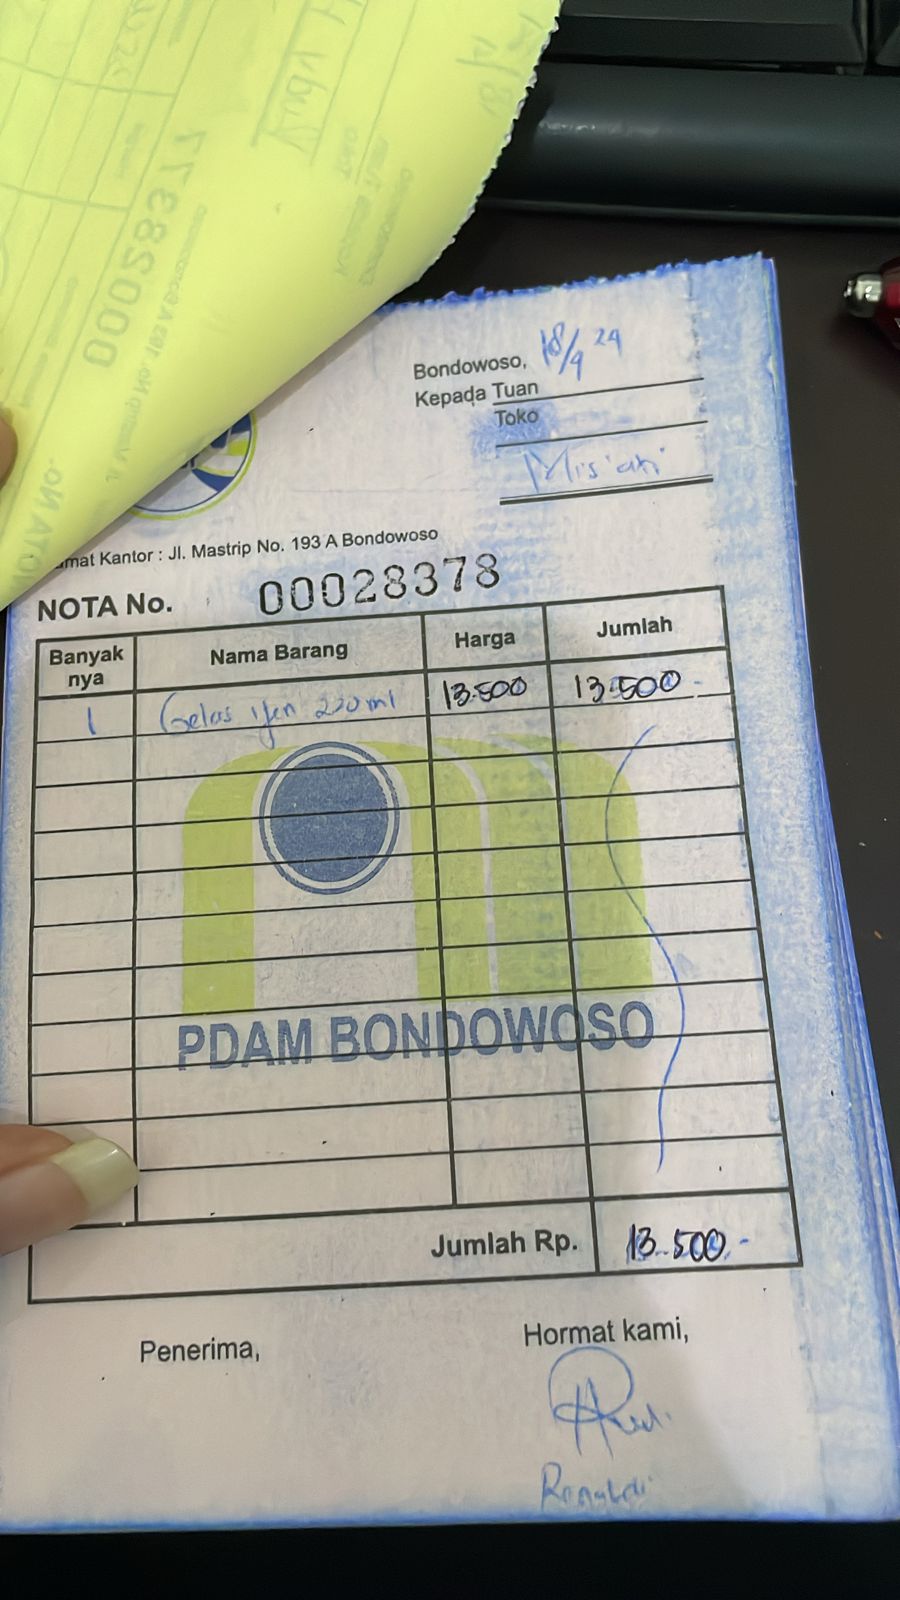 Bondowoso, 18/9 24
Kepada Tuan
Toko
Misiati
mat Kantor : Jl. Mastrip No. 193 A Bondowoso
NOTA No. 00028378
Banyak nya Nama Barang Harga Jumlah
1 Gelas Ijen 220 ml 13.500 13.500.-
PDAM BONDOWOSO
Jumlah Rp. 13.500.-
Penerima, Hormat kami,